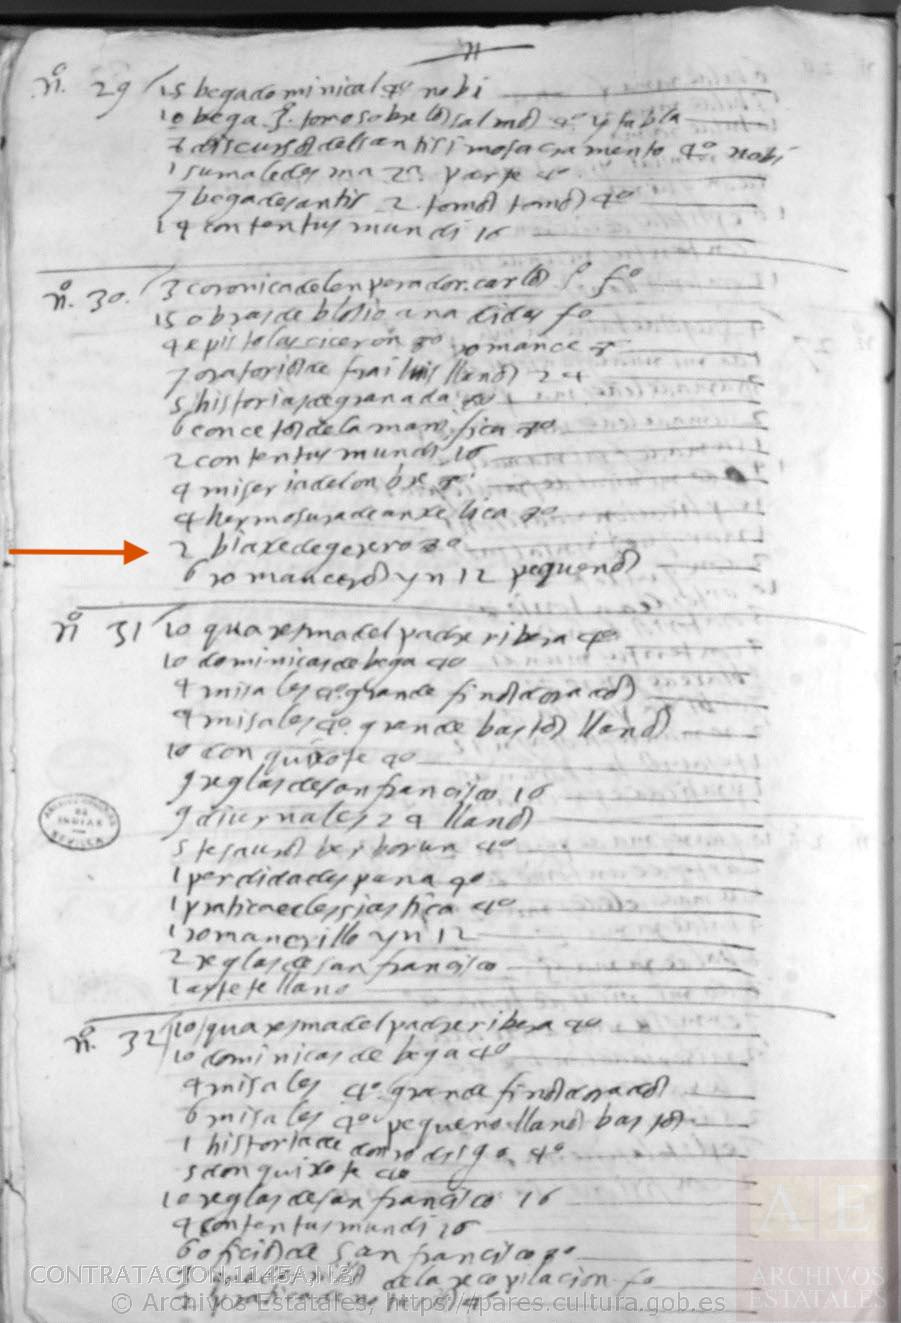 nº. 29 15 bega dominical 4º nobi
10 bega 3ª. tomo sobre los salmos 4º y tabla
7 discursos del santisimo sacramento 4º nobi
1 suma ledesma 2ª. parte 4º
7 bega de santis 2. tomos tomos 4º
14 contentus mundi 16
nº. 30. 3 coronica del enperador. carlos fº
15 obras de blosio anadidas fº
4 epistolas ciceron romance
7 oratorios de frai luis llanos 24
5 historias de granada 8º
6 concetos de la manifica 8º
2 contentus mundi 16
4 miseria del onbre 8º
4 hermosura de anxelica 8º
2 biaxe de gexero 8º
6 romanceros yn 12 pequenos
nº 31 10 quaresma del padre ribera 4º
10 dominicas de bega 4º
4 misales 4º. grande finos dorados
4 misales 4º. grande bastos llanos
10 don quixote 4º
9 reglas de san francisco 16
9 diurnales 24 llanos
5 tesauros berborun 4º
1 perdida despana 4º
1 pratica eclesiastica 4º
1 romancerillo yn 12
2 reglas de san francisco
1 arte te llano
nº. 32 10 quaresma del padre ribera 4º
10 dominicas de bega 4º
4 misales 4º. grande finos dorados
6 misales 4º pequeno llanos bastos
1 historia de 4º
5 don quixote 4º
10 reglas de san francisco 16
4 contentus mundi 16
6 oficios de san francisco 8º
de la recopilacion fº
ARCHIVO GENERAL DE INDIAS SEVILLA
CONTRATACION,1145A,N.8
© Archivos Estatales, https://pares.cultura.gob.es
AE
ARCHIVOS
ESTATALES